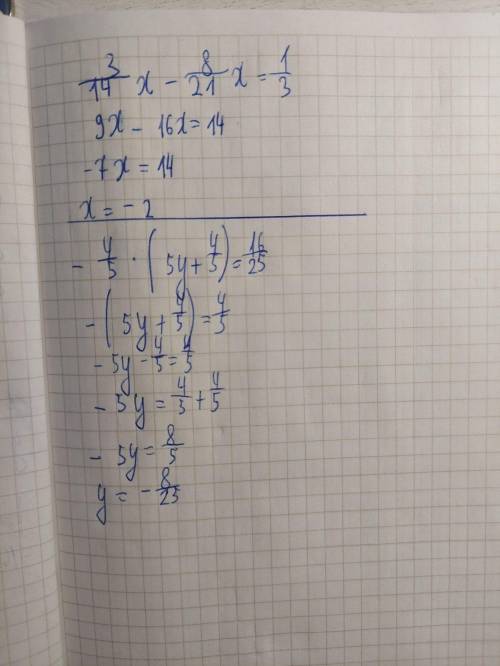 3/14 x - 8/21 x = 1/3
9x - 16x = 14
-7x = 14
x = - 2
- 4/5 · (5y + 4/5) = 16/25
- (5y + 4/5) = 4/5
- 5y - 4/5 = 4/5
- 5y = 4/5 + 4/5
- 5y = 8/5
y = - 8/25